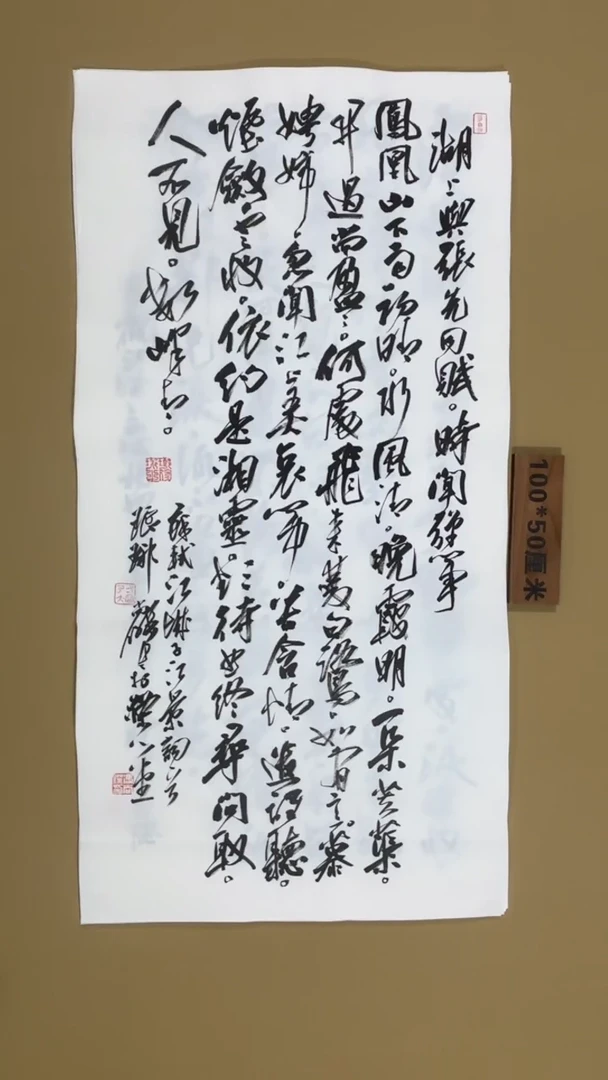 湖上與張先同賦。時聞彈箏
鳳凰山下雨初晴。水風清。晚霞明。一朵芙蕖。
开過尚盈〻。何處飛來雙白鷺。如有意。慕
娉婷。忽聞江上弄哀箏。苦含情。遣誰聽。
煙斂雲收。依約是湘靈。欲待曲終尋問取。
人不見。數峰青。
蘇軾江城子江景詞
100*50厘米